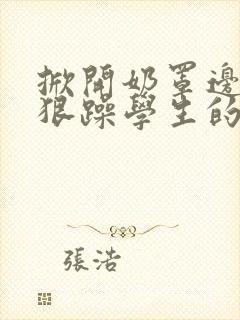 掀開奶罩邊
狠躁學生的
張浩